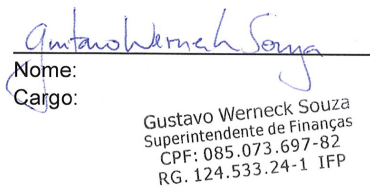 Gustavo Werneck Souza
Nome:
Cargo:
Gustavo Werneck Souza
Superintendente de Finanças
CPF: 085.073.697-82
RG. 124.533.24-1 IFP